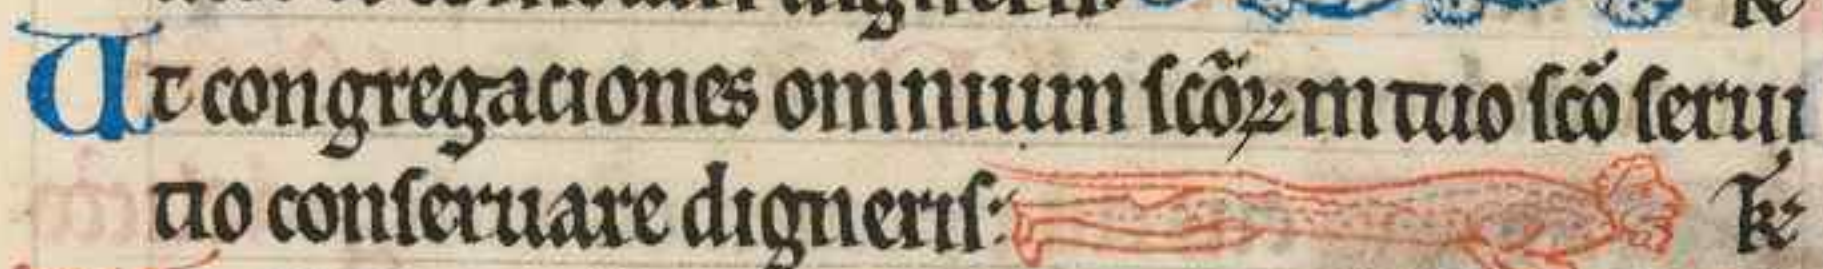 digneris
Ut congregaciones omnium scõꝝ in tuo scõ serui
tio conseruare digneris: